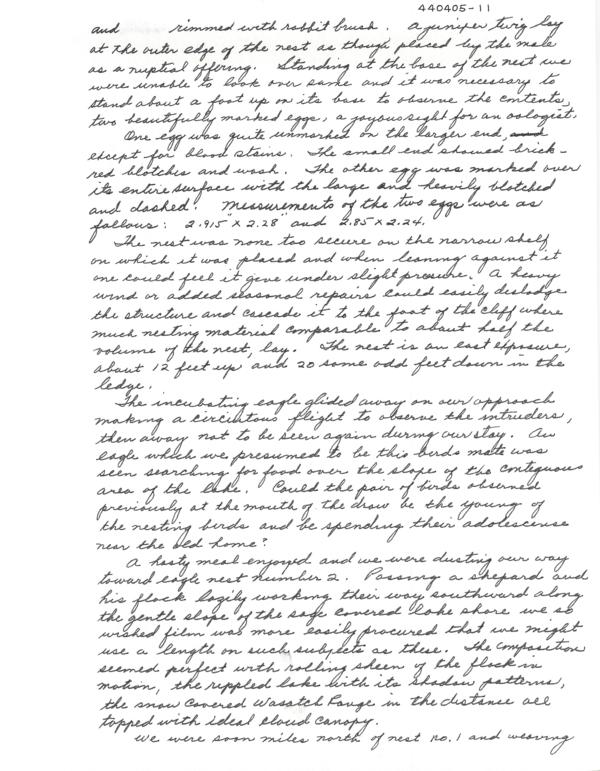 440405-11
and rimmed with rabbit brush. A juniper twig lay
at the outer edge of the nest as though placed by the male
as a nuptial offering. Standing at the base of the nest we
were unable to look over same and it was necessary to
stand about a foot up on its base to observe the contents,
two beautifully marked eggs, a joyous sight for an oologist.
One egg was quite unmarked on the larger end, and
except for blood stains. The small end showed brick-
red blotches and wash. The other egg was marked over
its entire surface with the large and heavily blotched
and dashed. Messurements of the two eggs were as
follows: 2.915" x 2.28" and 2.85 x 2.24.
The nest was none too secure on the narrow shelf
on which it was placed and when leaning against it
one could feel it geve under slight pressure. A heavy
wind or added seasonal repairs could easily dislodge
the structure and cascade it to the foot of the cliff where
much nesting material comparable to about half the
volume of the nest, lay. The nest is an east exposure,
about 12 feet up and 20 some odd feet down in the
ledge.
The incubating eagle glided away on our approach
making a circuitous flight to observe the intruders,
then away not to be seen again during our stay. An
eagle which we presumed to be this birds mate was
seen searching for food over the slope of the contiguous
area of the lake. Could the pair of birds observed
previously at the mouth of the draw be the young of
the nesting birds and be spending their adolescense
near the old home?
A hasty meal enjoyed and we were dusting our way
toward eagle nest number 2. Passing a shepard and
his flock lazily working their way southward along
the gentle slope of the sage covered lake shore we so
wished film was more easily procured that we might
use a length on such subjects as these. The composition
seemed perfect with rolling sheen of the flock in
motion, the rippled lake with its shadow patterns,
the snow covered Wasatch Range in the distance all
topped with ideal cloud canopy.
We were soon miles north of nest no. 1 and weaving